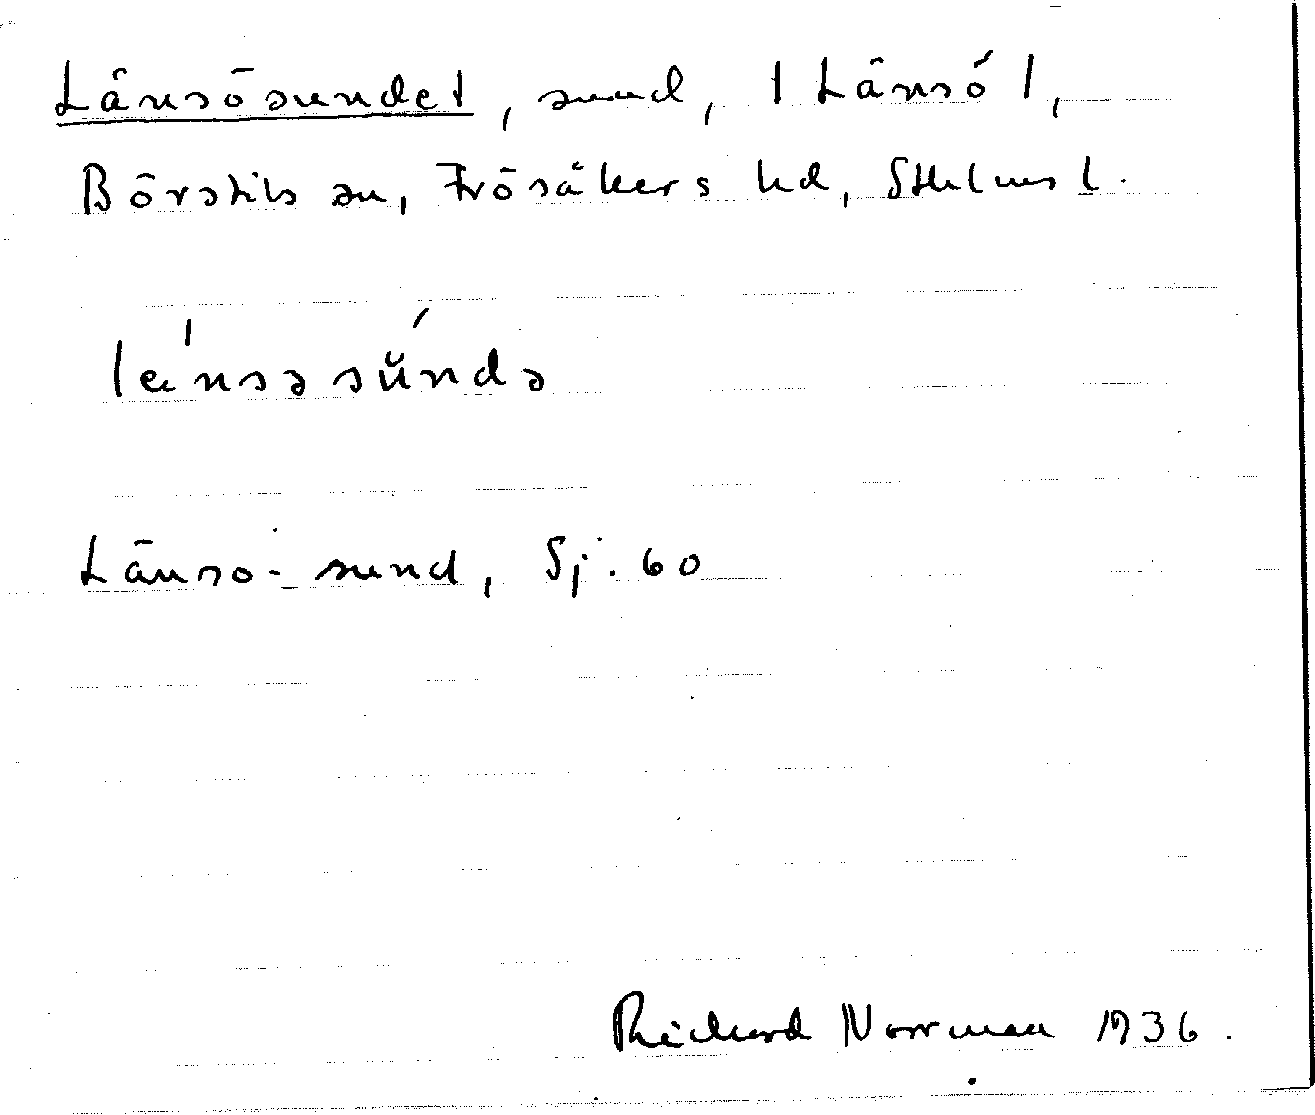 Länsösundet, sund, ( Länsö ),
Börstils sn, Frösåkers hd, Sthlms l.
lä'nsəsŭ́ndə
Länsö-sund, Sj. 60
Richard Norrman 1936.